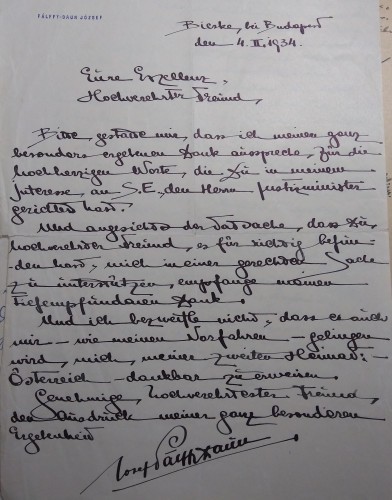 PÁLFFY-DAUN JÓZSEF
Bicske, bei Budapest
den 4. II. 1934.
Eure Exzellenz,
Hochverehrter Freund,
Bitte, gestatte mir, dass ich meinen ganz
besonders ergebenen Dank ausspreche, für die
hochherzigen Worte, die Du in meinem
Interesse, an S.E., den Herrn Justizminister
gerichtet hast.
Und angesichts der Tatsache, dass Du,
hochverehrter Freund, es für richtig befun-
den hast, mich in einer gerechten Sache
zu unterstützen, empfange meinen
tiefempfundenen Dank.
Und ich bezweifle nicht, dass es auch
mir – wie meinen Vorfahren – gelingen
wird, mich, meiner zweiten Heimat:
Österreich – dankbar zu erweisen.
Genehmige, hochverehrtester Freund,
den Ausdruck meiner ganz besonderen
Ergebenheit
Josef Pálffy Daun